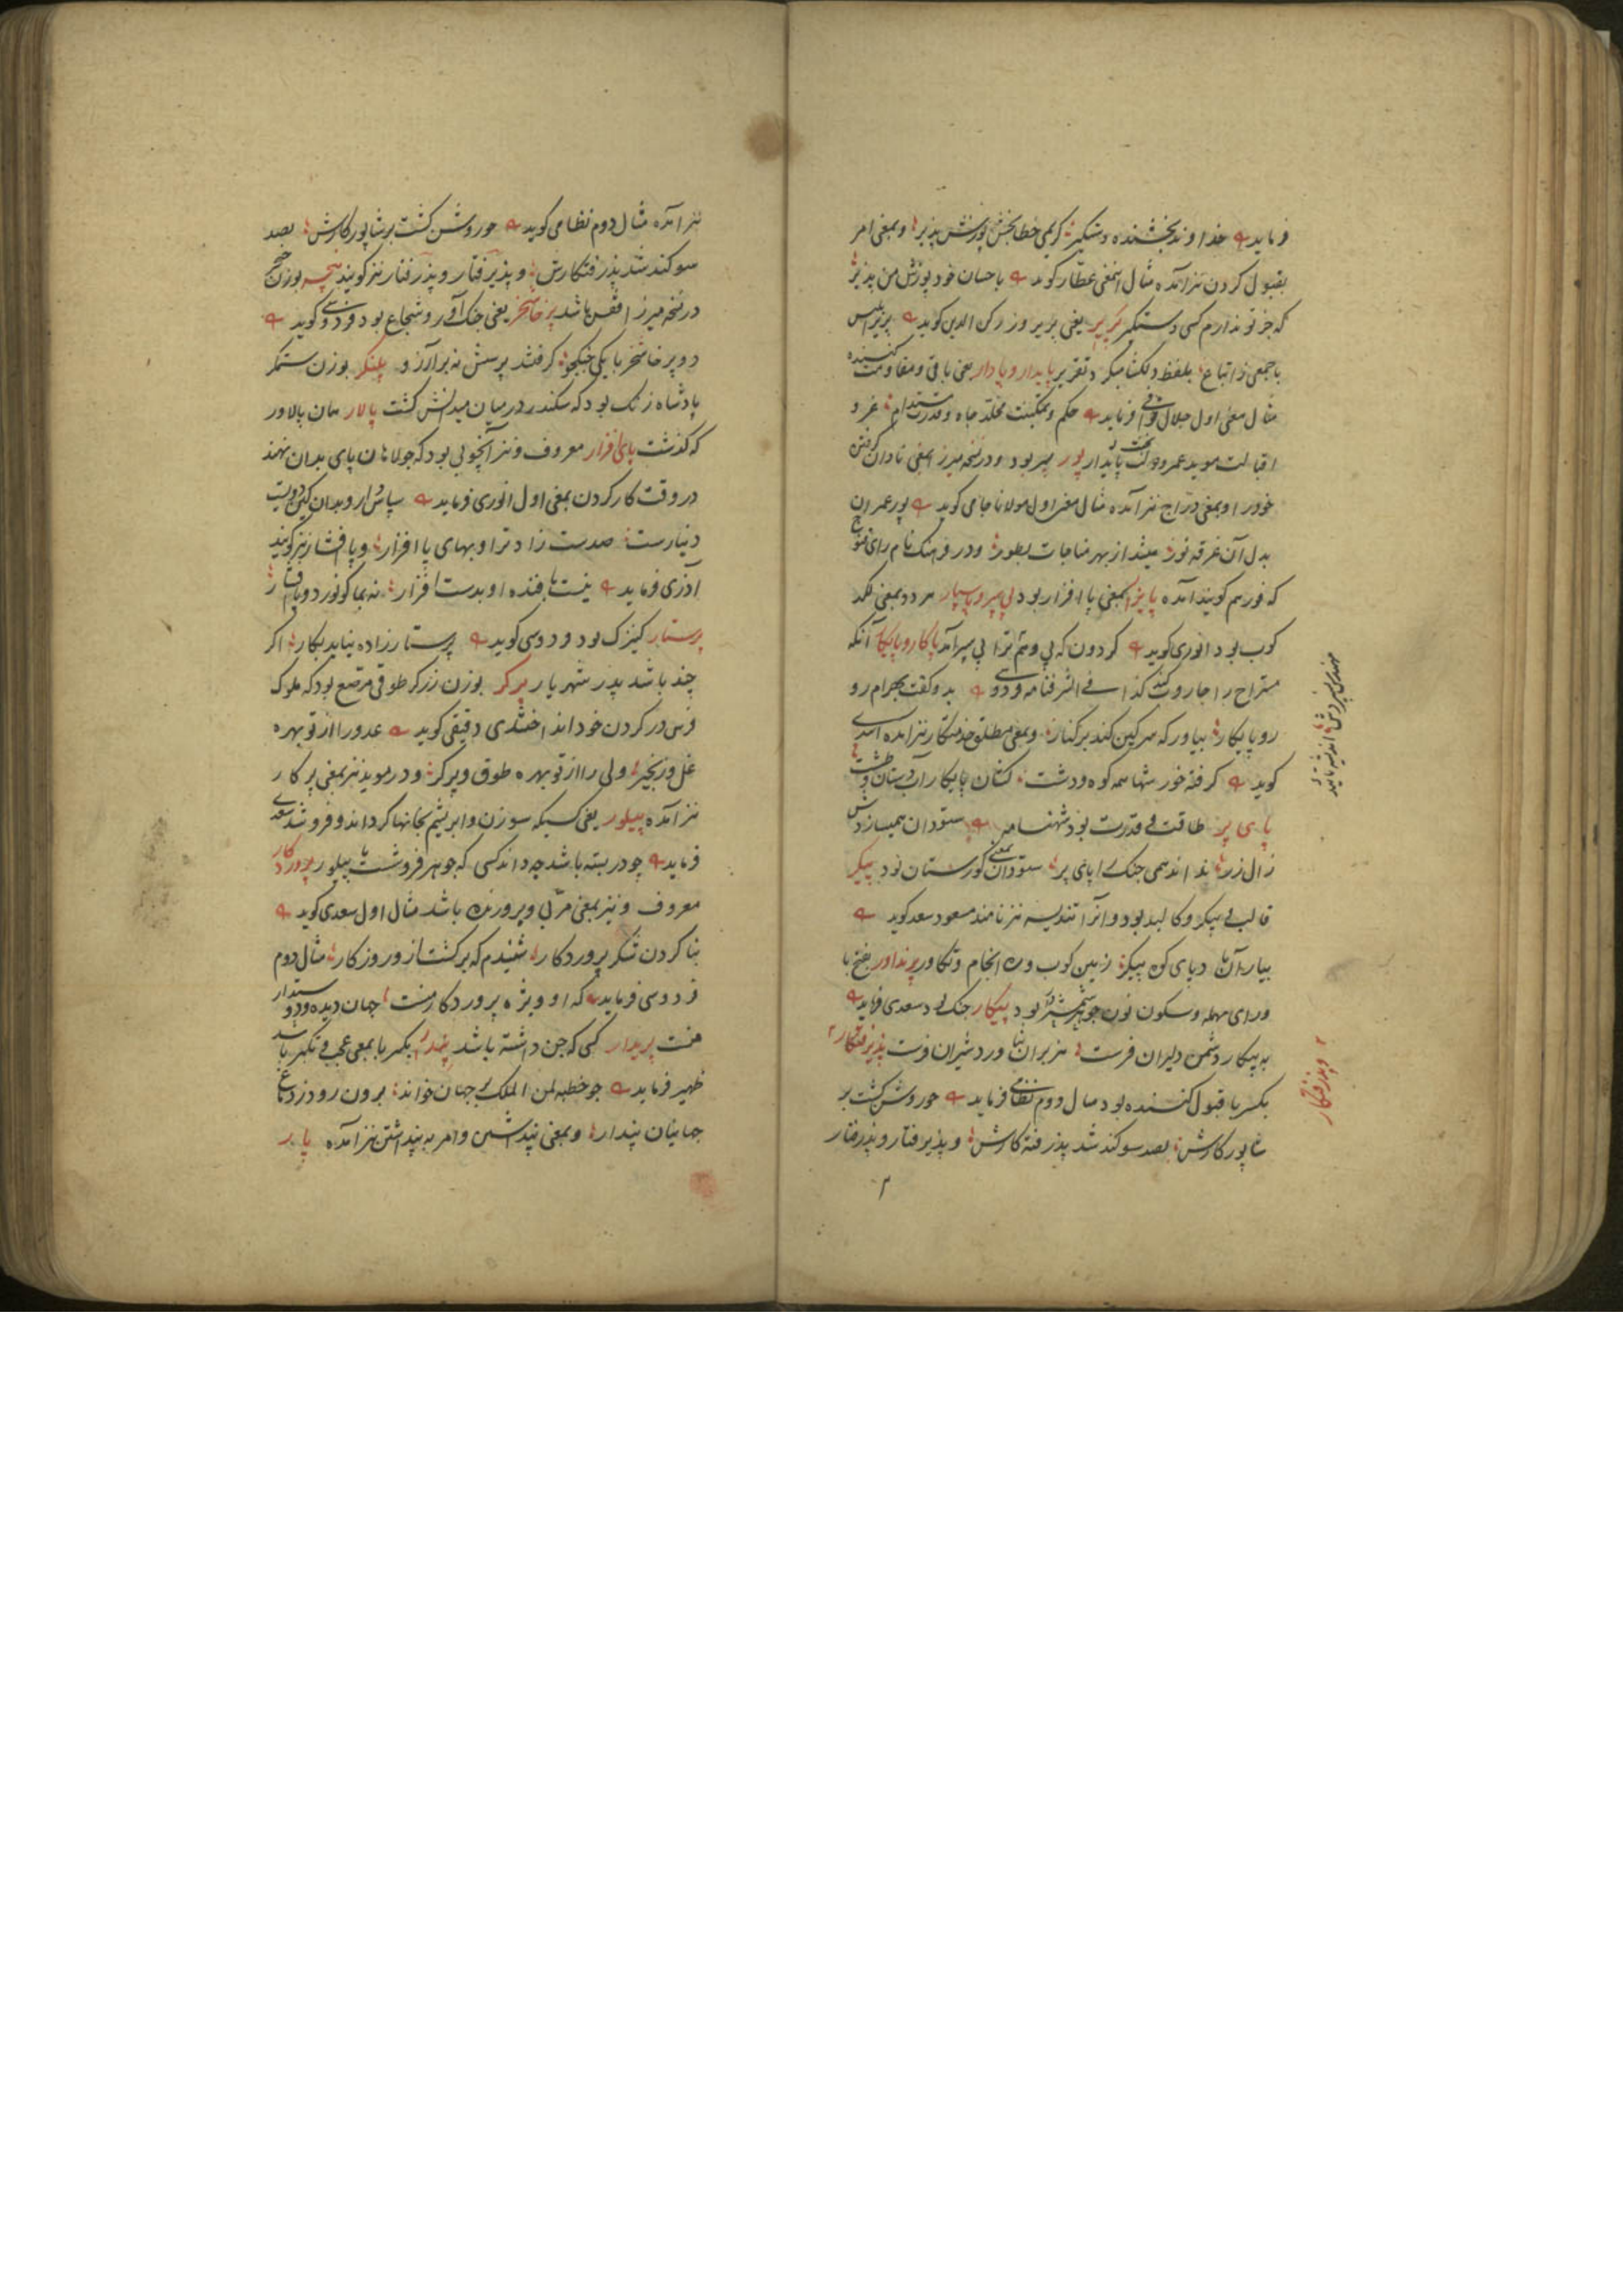 فرماید خداوند بخشنده دستگیر کریمی خطابخش پوزش پذیر و بمعنی امر
بقبول کردن نیز آمده مثال اینمعنی عطار گوید باحسان خود پوزش من پذیر
که جز تو ندارم کسی دستگیر پریر یعنی پریروز رکن الدین گوید پریر ابلیس
باجمعی ز اتباع بلفظ دلکشا میکرد تقریر پایدار و پادار یعنی باقی و مقاومت کننده
مثال معنی اول جلال فرماید حکم و تمکینت مخلد جاه و قدرت مستدام عز و
اقبالت موید عمر و دولت پایدار پور پسر بود و در نسخه میرزا بمعنی نادان گرفتن
خود را و بمعنی دراج نیز آمده مثال معنی اول مولانا جامی گوید پور عمران
بدل آن غرقه نور میشد از بهر مناجات بطور و در فرهنگ نام رای قنوج
که فور هم گویند آمده پایزار بمعنی پا افزار بود پی سپر و پا سپار هر دو بمعنی لگد
کوب بود انوری گوید گردون که پی وهم ترا پی سپر آمد پاکار و پایکار آنکه
مستراح را جاروب کند کذا فی الشرفنامه فردوسی بدو گفت بهرام رو
رو پایکار بیاور که سرگین کند بر کنار و بمعنی مطلق خدمتکار نیز آمده اسدی
گوید گرفته خورشها همه کوه و دشت کشان پایکار آبدستان و طشت
پای پر طاقت و قدرت بود شهنامه ستودان همیسازدش
زال زر نداند همی جنگ را پای پر ستودان بمعنی گورستان بود پیکر
قالب پیکر و کالبد بود و آنرا تندیسه نیز نامند مسعود سعد گوید
بیار آن بادپای کوه پیکر زمین کوب و ره انجام و تکاور پرنداور بفتح با
و رای مهمله و سکون نون جوهر شمشیر بود پیکار جنگ بود سعدی فرماید
به پیکار دشمن دلیران فرست هزبران بناورد شیران فرست پذیرفتکار
بکسر با قبول کننده بود مثال دوم نظامی فرماید چو روشن گشت بر
شاپور کارش بصد سوگند شد پذرفته کارش و پذیرفتار و پذرفتار
و پذرفتکار
نیز آمده مثال دوم نظامی گوید چو روشن گشت بر شاپور کارش بصد
سوگند شد پذرفتکارش و پذیرفتار و پذرفتار نیز گویند بوزن
در نسخه میرزا قفس باشد پرخاشخر یعنی جنگ آور و شجاع بود فردوسی گوید
دو پرخاشخر با یکی جنگجو گرفتند پرسش نه بر آرزو پلنکر بوزن ستمگر
پادشاه زنگ بود که سکندر در میان میدانش کشت پالار همان پالاور
که گذشت پای افزار معروف و نیز آنچوبی بود که جولاهان پای بدان نهند
در وقت کار کردن بمعنی اول انوری فرماید
دینارست صدست زاد ترا و بهای پا افزار و پا افشار نیز گویند
آذری فرماید نیست بافنده او بدست افزار نه بما کو نورد و پا افشار
پرستار کنیزک بود فردوسی گوید پرستار زاده نیاید بکار اگر
چند باشد پدر شهریار پرگر بوزن زرگر طوقی مرصع بود که ملوک
فرس در گردن خود انداختندی دقیقی گوید عدو را از تو بهره
غل و زنجیر ولی را از تو بهره طوق و پرگر و در موید نیز بمعنی پرکار
نیز آمده پیلور یعنی کسیکه سوزن و ابریشم بخانها گرداند و فروشد سعدی
فرماید چو در بسته باشد چه داند کسی که جوهر فروشست یا پیلور پروردکار
معروف و نیز بمعنی مربی و پرورنده باشد مثال اول سعدی گوید
بنا کردن شکر پروردکار شنیدم که برگشت از و روزکار مثال دوم
فردوسی فرماید که او ویژه پروردکار منست جهان دیده و دوستدار
منست پریدار کسی که جن داشته باشد پندار بکسر با بمعنی عجب و تکبر باشد
ظهیر فرماید چو خطبه لمن الملک بر جهان خواند برون رود ز دماغ
جهانیان پندار و بمعنی پنداشتن و امر به پنداشتن نیز آمده پا بر